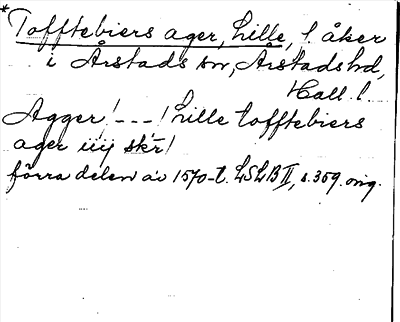 * Tofftebiers ager, Lille, l. åker
i Årstads sn, Årstads hd,
Hall. l.
Agger! _ _ _ ! Lille tofftebiers
ager iiij skr!
förra delen av 1570-t. LSLB II, s. 359. orig.